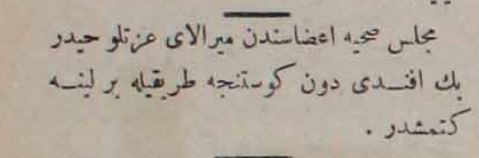 مجلس صحيه اعضاسندن ميرالاى عزتلو حيدر
بك افنــدى دون كوستنجه طريقيله برلينــه
كتمشدر .